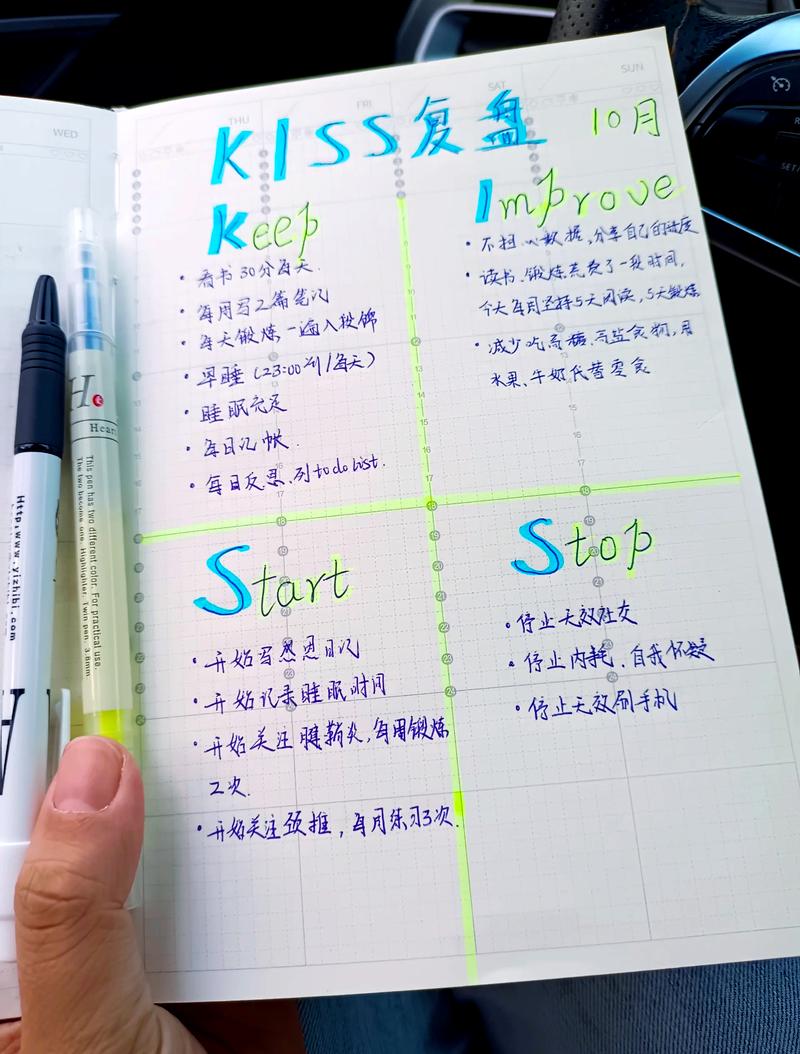 WED
THU
FRI
SAT
SUN
KISS复盘 10月
Keep
• 看书30分每天.
• 每周写2篇笔记
• 每天锻炼一遍八段锦
• 早睡(23:00前/每天)
• 睡眠充足
• 每日记帐.
• 每日反思、列todolist.
Improve
• 不担心数据,分享自己的进度
• 读书、锻炼荒费了一段时间,
今天每周坚持5天阅读,5天锻炼
• 减少吃高糖、高盐食物,用
水果、牛奶代替零食
Start
• 开始写感恩日记
• 开始记录睡眠时间
• 开始关注腱鞘炎,每周锻炼
2次.
• 开始关注颈椎,每月练习3次.
Stop
• 停止无效社交
• 停止内耗、自我怀疑
• 停止无效刷手机
Http:www.yizhibi.com
H.
Hear
This pen has two different color. For practical use.
The two become one. Highlighter. Twin pen. 3.8mm